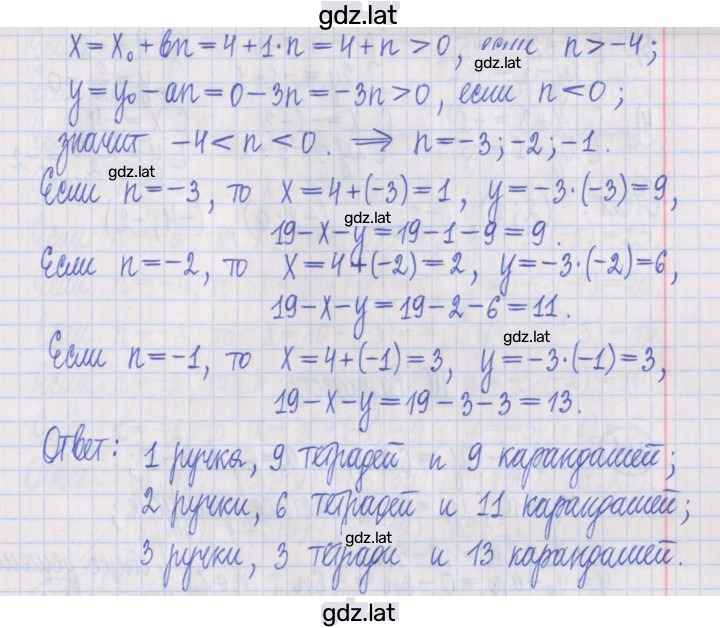 gdz.lat
x = x₀ + вn = 4 + 1·n = 4 + n > 0, если n > -4;
gdz.lat
y = y₀ - an = 0 - 3n = -3n > 0, если n < 0;
значит -4 < n < 0. ⟹ n = -3; -2; -1.
gdz.lat
Если n = -3, то x = 4 + (-3) = 1, y = -3·(-3) = 9,
gdz.lat
19 - x - y = 19 - 1 - 9 = 9.
Если n = -2, то x = 4 + (-2) = 2, y = -3·(-2) = 6,
19 - x - y = 19 - 2 - 6 = 11.
gdz.lat
Если n = -1, то x = 4 + (-1) = 3, y = -3·(-1) = 3,
19 - x - y = 19 - 3 - 3 = 13.
Ответ: 1 ручка, 9 тетрадей и 9 карандашей;
2 ручки, 6 тетрадей и 11 карандашей;
gdz.lat
3 ручки, 3 тетради и 13 карандашей.
gdz.lat